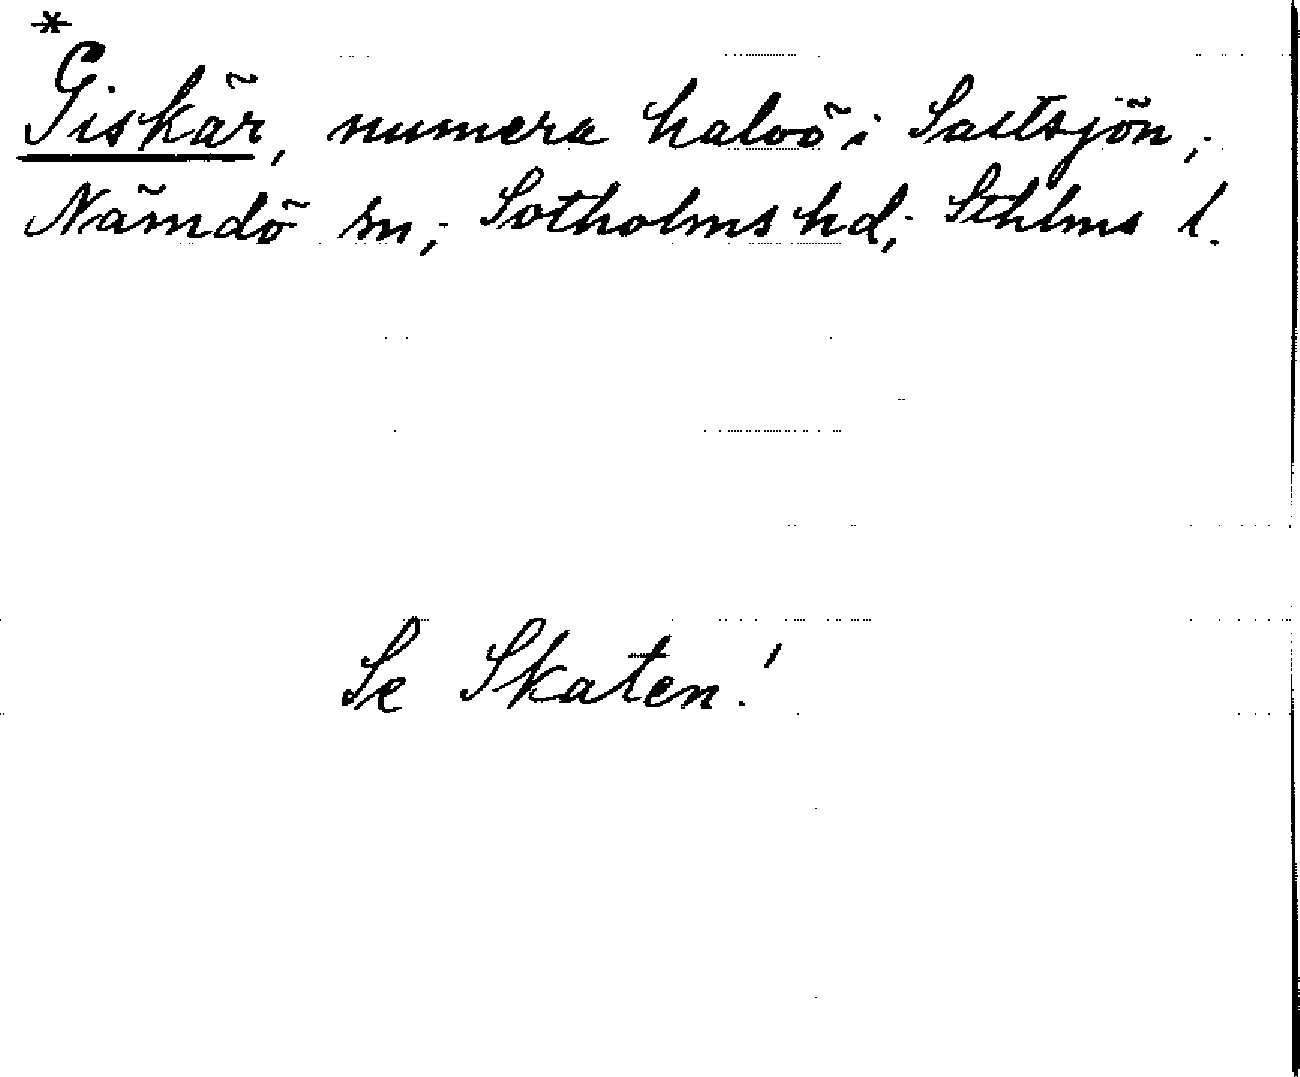 *
Giskär, numera halvö i Saltsjön,
Nämdö sn, Sotholms hd, Sthlms l.
Se Skaten!